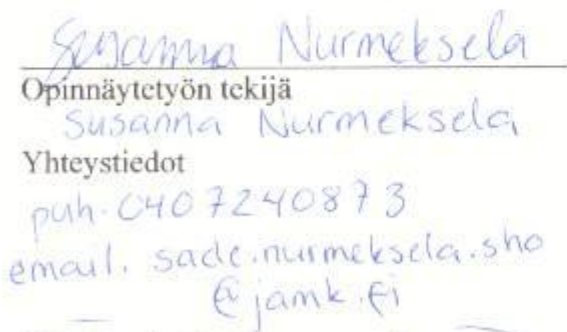 Susanna Nurmeksela
Opinnäytetyön tekijä
Susanna Nurmeksela
Yhteystiedot
puh. 0407240873
email. sade.nurmeksela.sho
@jamk.fi